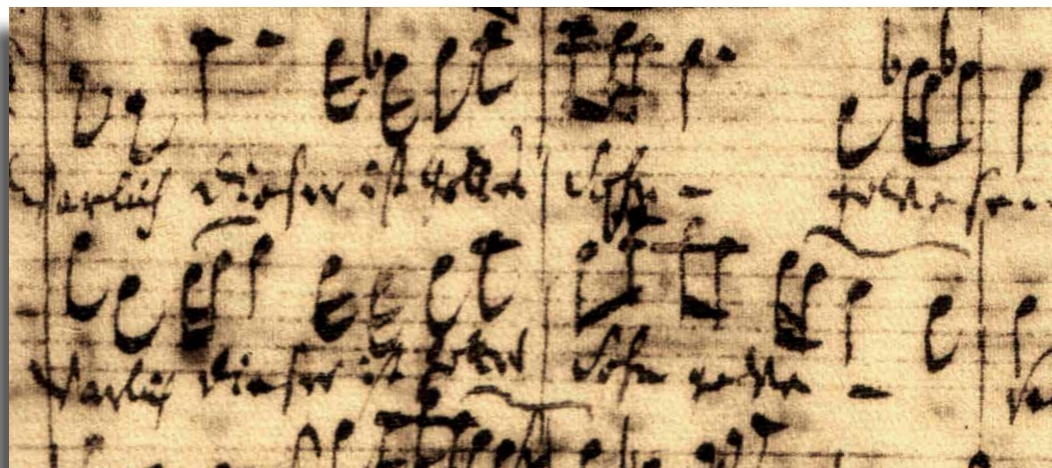 Warlich dieser ist Gottes Sohn - gewesen
Warlich dieser ist Gottes Sohn gewe -